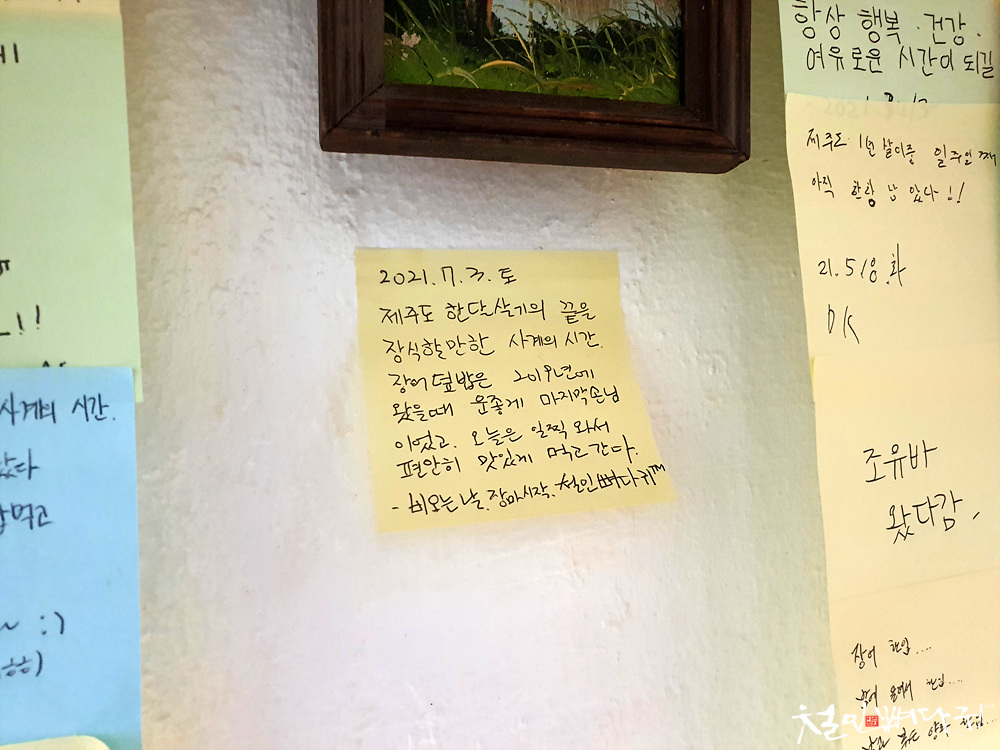 2021.7.3.토
제주도 한달살기의 끝을
장식할만한 사계의 시간.
장어덮밥은 2019년에
왔을때 운좋게 마지막손님
이었고. 오늘은 일찍 와서
편안히 맛있게 먹고 간다.
- 비오는 날. 장마시작. 철인뼈다귀™
사계의 시간.
았다
먹고
~ :)
ㅎㅎ)
항상 행복. 건강.
여유로운 시간이 되길
제주도 1년살이중 일주일째
아직 한참 남았다!!
21.5/8.화
OK
조유바
왔다감.
장어 한입....
철인뼈다귀